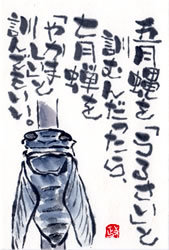 五月蝿を「うるさい」と
訓むんだったら、
七月蝉を
「やかましい」と
訓んでもいい。